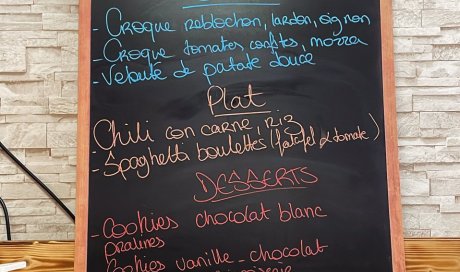 - Croque reblochon, lardon, oignon
- Croque tomates confites, mozza
- Velouté de patate douce
Plat
- Chili con carne, riz
- Spaghetti boulettes (falafel & tomate)
DESSERTS
- Cookies chocolat blanc
pralines
- Cookies vanille - chocolat